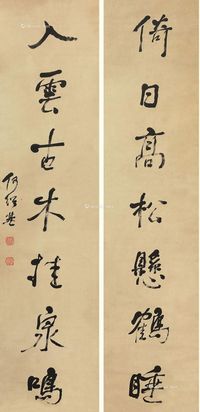 倚日高松懸鶴睡
入雲古木挂泉鳴
何紹基